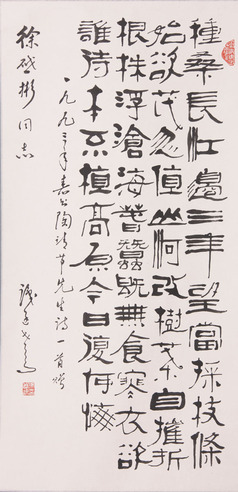 種桑長江邊三年望當採枝條
始欲茂忽值山河改樹葉自摧折
根株浮滄海春蠶既無食寒衣欲
誰待本不植高原今日復何悔
一九九三年書陶靖節先生詩一首贈
徐彬同志